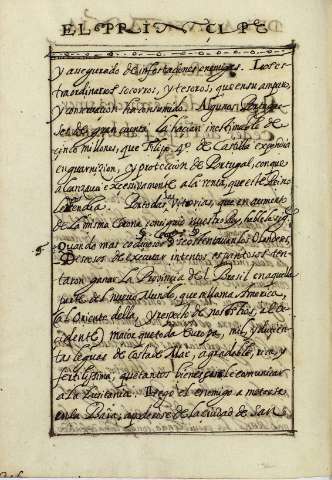 EL PRINCIPE
y asegurado de infestaciones enemigas. Los es
traordinarios socorros, y tesoros, que en su amparo,
y conservacion ha consumido. Algunos Portugue
ses de gran cuenta la hacian inestimable de
cinco millones, que Filipe 4º de Castilla expendia
en guarnizion, y proteccion de Portugal, con que
alcançava excessivamente a la renta, que este Reino
le rendia. Por todas Vitorias, que en aumento
de la misma Corona consiguio nuestro
Quando mas se ostentavan los Olandeses,
Deseosos de executar intentos espantosos inten
taron ganar la Provincia del Brasil en aquella
parte del nuevo Mundo, que se llama America,
al Oriente della, y respeto de nosotros, al Oc
cidente, maior que toda Europa, mil, y docien
tas leguas de Costa de Mar, agradable, rica, y
fertilissima, que tantos bienes puede comunicar
a la Lusitania. Llego el enemigo a meterse
en la Baia, apoderose de la Ciudad de San